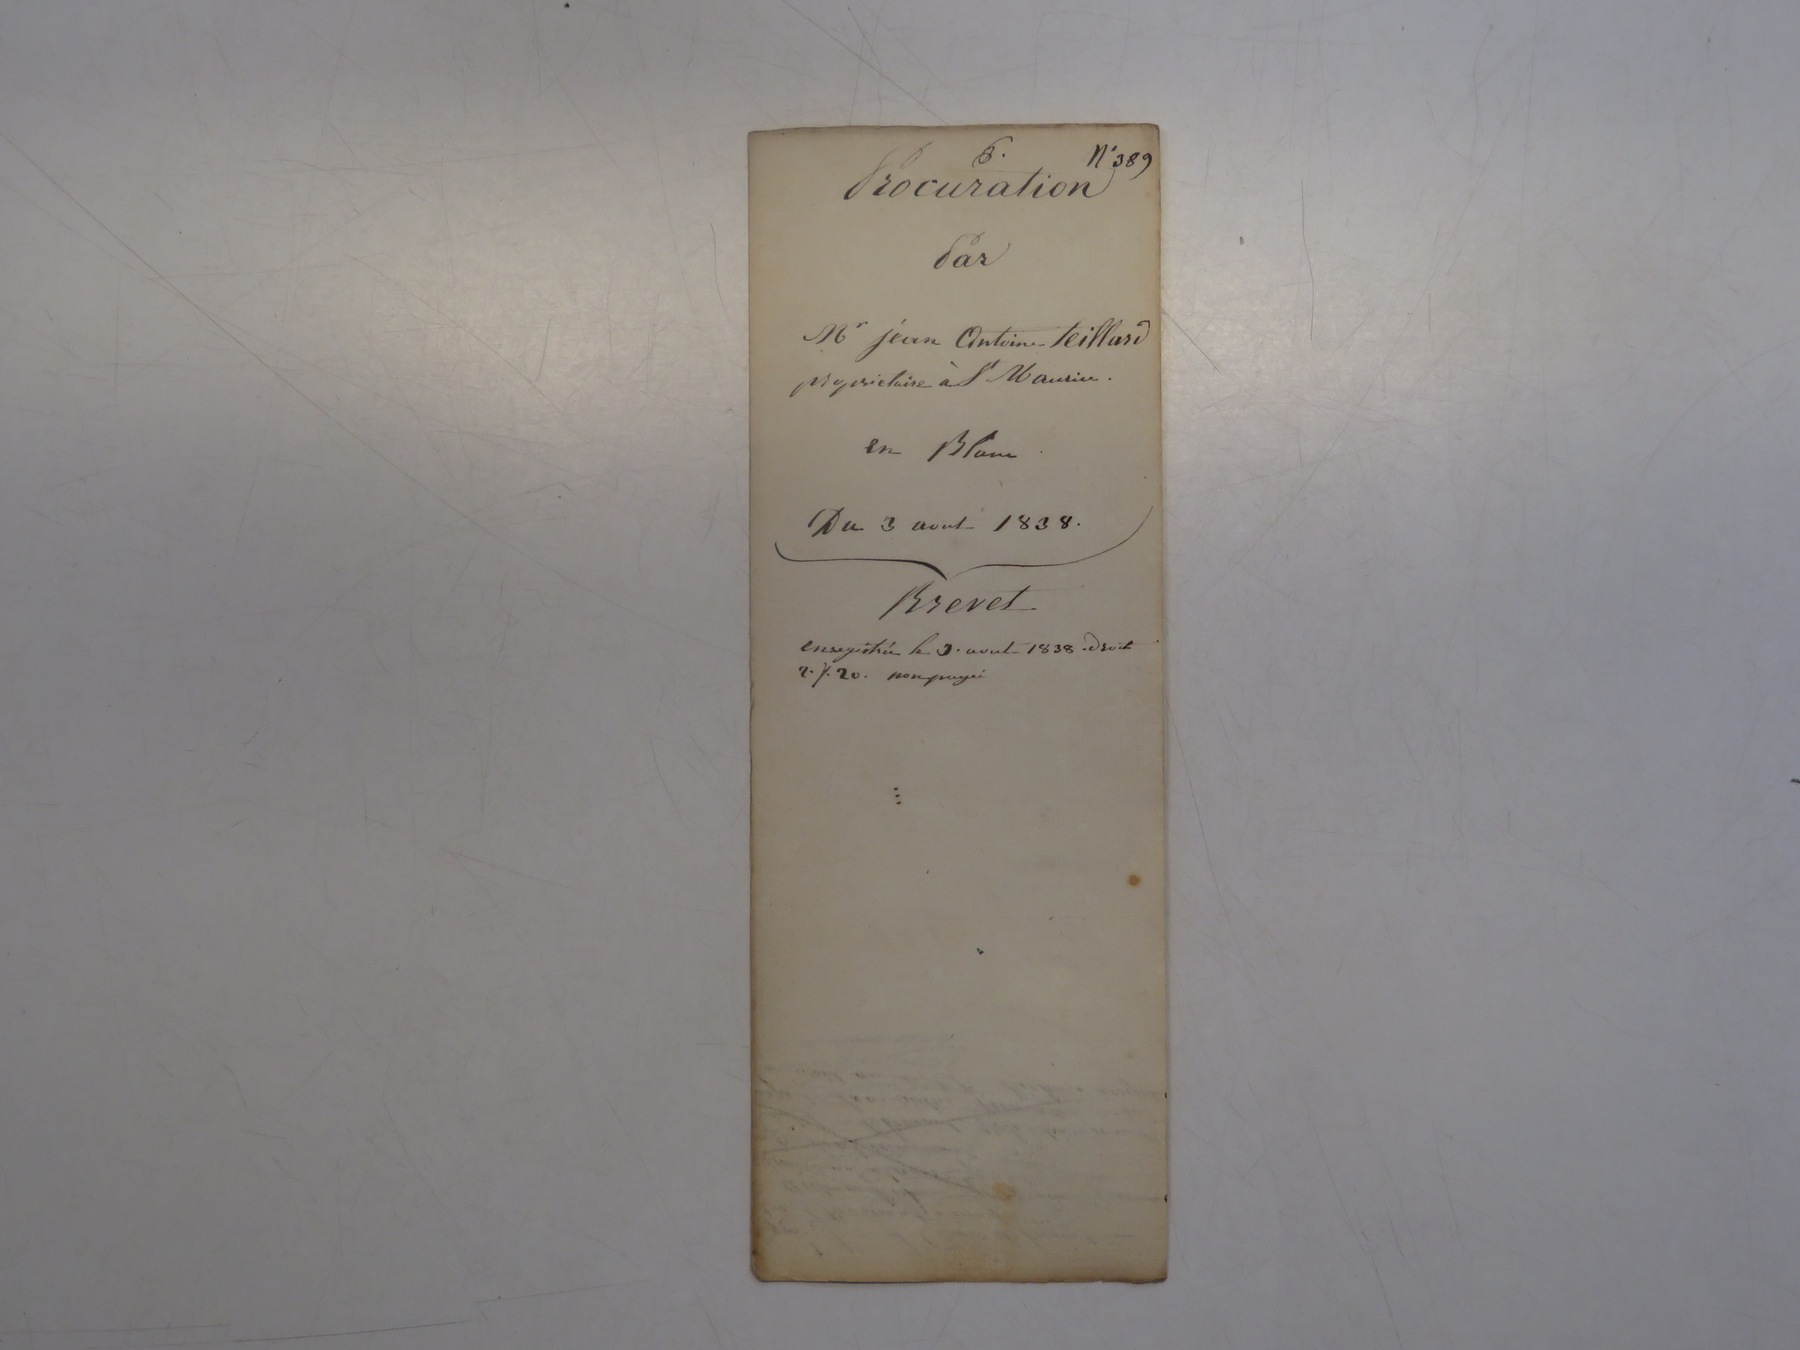 N° 389
Procuration
Par
Mr jean Antoine teillard
proprietaire à St Maurice.
en Blanc
Du 3 aout 1838.
Brevet
enregistrée le 3. aout 1838. droit
2. f. 20. non payé